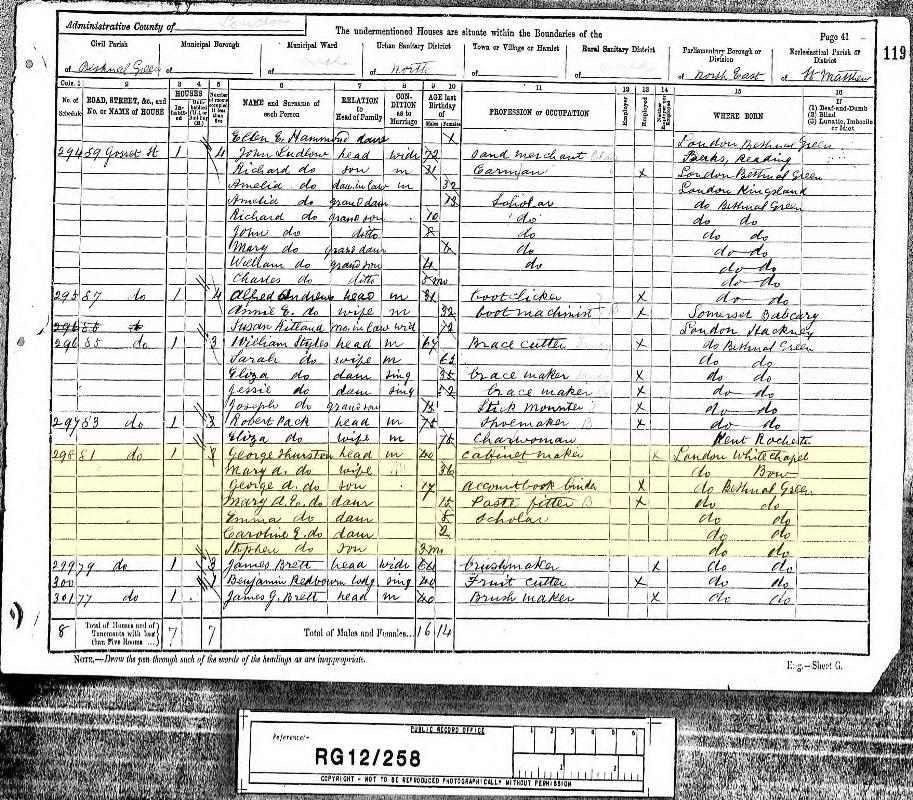 Administrative County of London
The undermentioned Houses are situate within the Boundaries of the
Page 41
119
Civil Parish
Municipal Borough
Municipal Ward
Urban Sanitary District
Town or Village or Hamlet
Rural Sanitary District
Parliamentary Borough or Division
Ecclesiastical Parish or District
of Bethnal Green
of
of
of North
of
of
of North East
of St Matthew
Cols. 1 2 3 4 5 6 7 8 9 10 11 12 13 14 15 16
No. of Schedule
ROAD, STREET, &c., and No. or NAME of HOUSE
HOUSES
NAME and Surname of each Person
RELATION to Head of Family
CONDITION as to Marriage
AGE last Birthday of
Males Females
PROFESSION or OCCUPATION
Employer
Employed
WHERE BORN
If (1) Deaf-and-Dumb (2) Blind (3) Lunatic, Imbecile or Idiot
Ellen E. Hammond daur London Bethnal Green
294 89 Gosset St 1 4 John Ludlow head widr 72 Sand merchant Berks, Reading
Richard do son m 31 Carman X London Bethnal Green
Amelia do daur in law m 32 London Kingsland
Amelia do grand daur 13 Scholar do Bethnal Green
Richard do grandson 10 do do do
John do ditto 8 do do do
Mary do grand daur 6 do do do
William do grandson 4 do do do
Charles do ditto 5 mo do do
295 87 do 1 4 Alfred Andrews head m 31 boot clicker X do do
Annie E. do wife m 32 boot machinist X Somerset Babcary
Susan Kitland mo in law wid 72 London Hackney
296 85 do 1 3 William Styles head m 67 Brace cutter X do Bethnal Green
Sarah do wife m 63 do do
Eliza do daur sing 35 brace maker X do do
Jessie do daur sing 22 brace maker X do do
Joseph do grandson 15 Stick Mounter X do do
297 83 do 1 3 Robert Pack head m 75 Shoemaker X do do
Eliza do wife m 75 Charwoman Kent Rochester
298 81 do 1 George Thurston head m 40 Cabinet maker X London Whitechapel
Mary A. do wife 36 do Bow
George A. do son 17 account book binder X do Bethnal Green
Mary A. E. do daur 15 Paste fitter X do do
Emma do daur 8 Scholar do do
Caroline E. do daur 2 do do
Stephen do son 3 m do do
299 79 do 1 3 James Brett head widr 64 brushmaker X do do
300 Benjamin Redbourn lodg sing 40 Fruit Cutter X do do
301 77 do 1 James G. Brett head m 40 Brush maker X do do
8 Total of Houses and of Tenements with less than Five Rooms 7 7 Total of Males and Females... 16 14
NOTE.—Draw the pen through such of the words of the headings as are inappropriate.
Eng.—Sheet G.
PUBLIC RECORD OFFICE
Reference:-
1 2 3 4 5 6
RG12/258
COPYRIGHT - NOT TO BE REPRODUCED PHOTOGRAPHICALLY WITHOUT PERMISSION